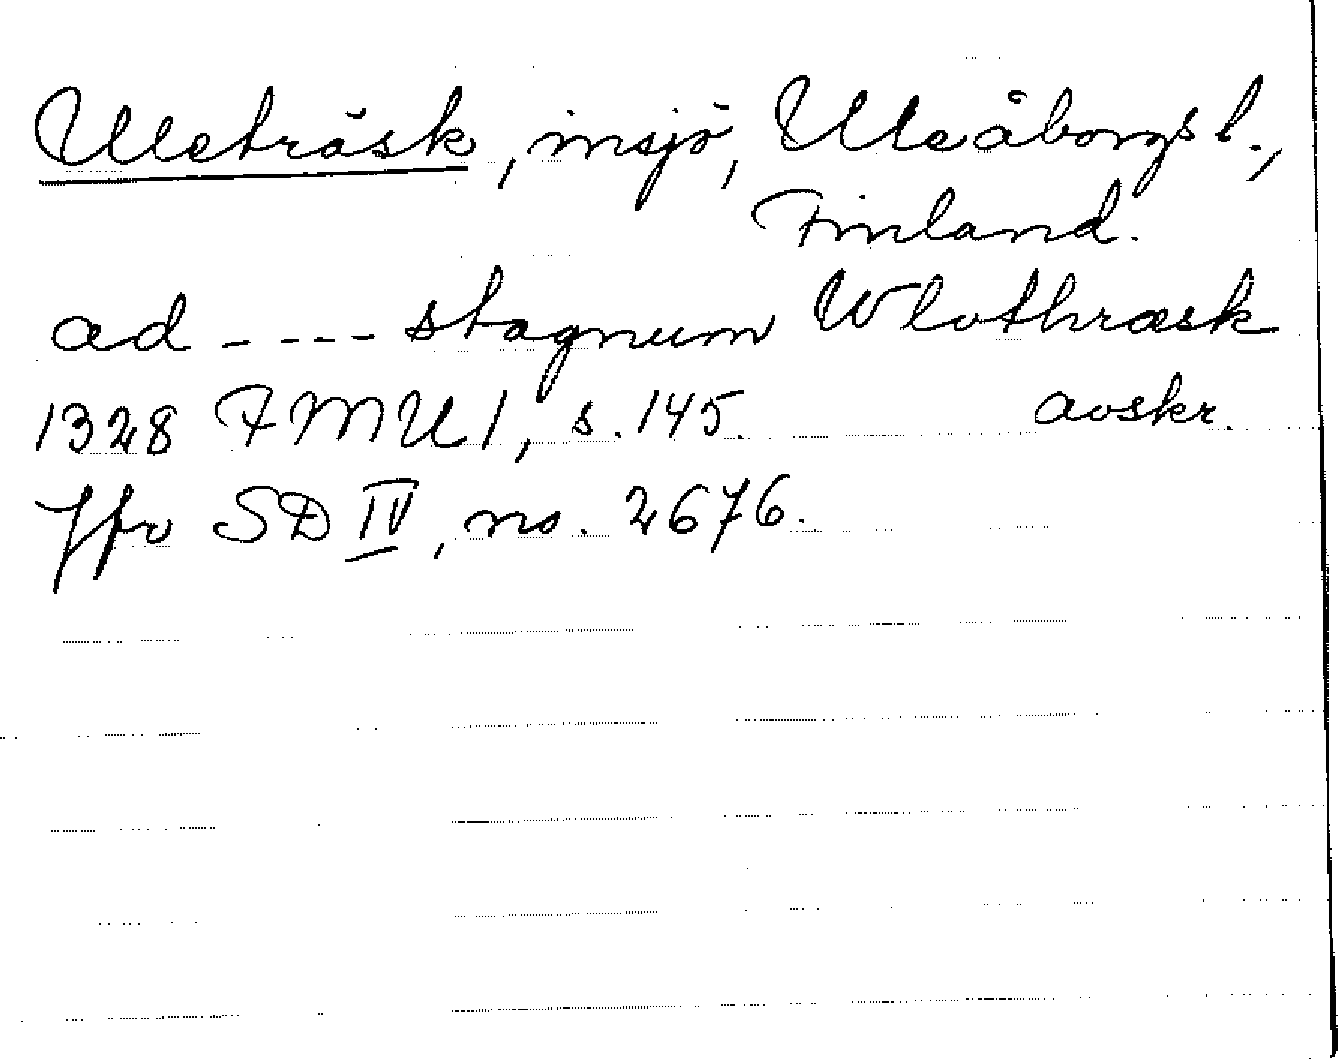 Uleträsk, insjö, Uleåborgs l.,
Finland.
ad ---- stagnum Wlothræsk
1328 FMU 1, s. 145. avskr.
Jfr SD IV, no. 2676.